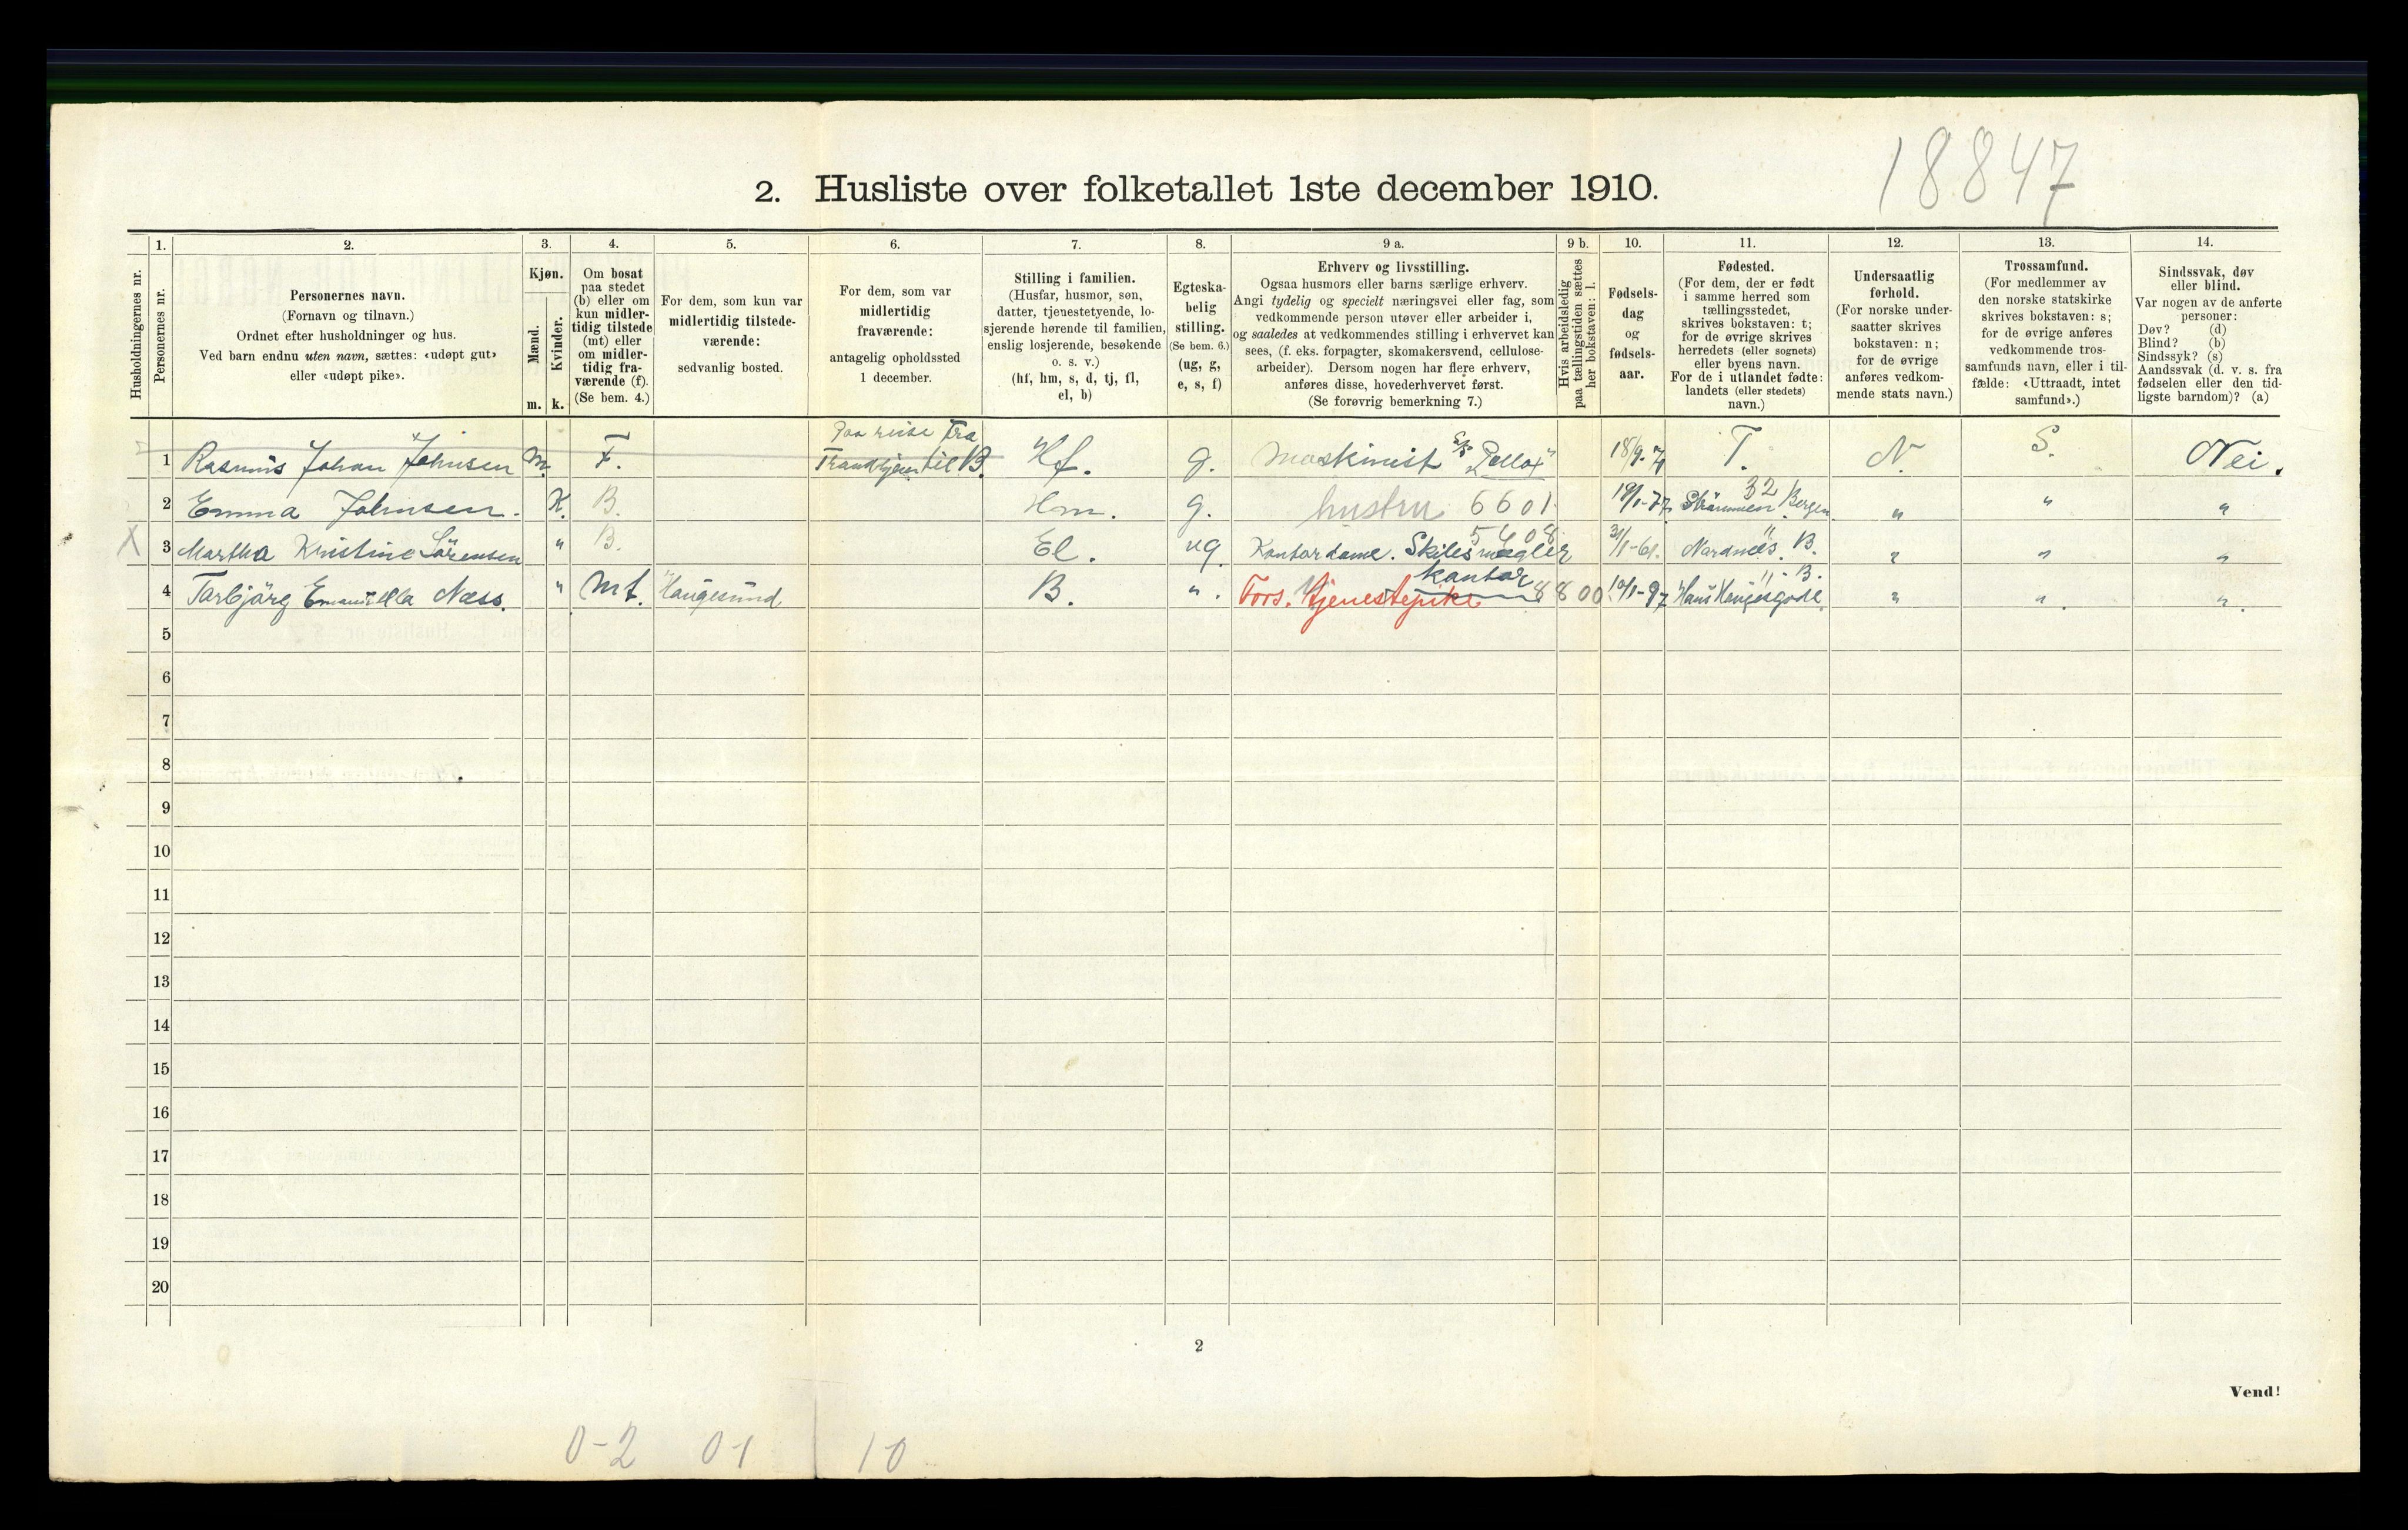 18847
2. Husliste over folketallet 1ste december 1910.
Husholdningernes nr.
1.
Personernes nr.
2.
Personernes navn.
(Fornavn og tilnavn.)
Ordnet efter husholdninger og hus.
Ved barn endnu uten navn, sættes: «udøpt gut»
eller «udøpt pike».
3.
Kjøn.
Mænd.
Kvinder.
m. k.
4.
Om bosat
paa stedet
(b) eller om
kun midler-
tidig tilstede
(mt) eller
om midler-
tidig fra-
værende (f).
(Se bem. 4.)
5.
For dem, som kun var
midlertidig tilstede-
værende:
sedvanlig bosted.
6.
For dem, som var
midlertidig
fraværende:
antagelig opholdssted
1 december.
7.
Stilling i familien.
(Husfar, husmor, søn,
datter, tjenestetyende, lo-
sjerende hørende til familien,
enslig losjerende, besøkende
o. s. v.)
(hf, hm, s, d, tj, fl,
el, b)
8.
Egteska-
belig
stilling.
(Se bem. 6.)
(ug, g,
e, s, f)
9 a.
Erhverv og livsstilling.
Ogsaa husmors eller barns særlige erhverv.
Angi tydelig og specielt næringsvei eller fag, som
vedkommende person utøver eller arbeider i,
og saaledes at vedkommendes stilling i erhvervet kan
sees, (f. eks. forpagter, skomakersvend, cellulose-
arbeider). Dersom nogen har flere erhverv,
anføres disse, hovederhvervet først.
(Se forøvrig bemerkning 7.)
9 b.
Hvis arbeidsledig
paa tællingstiden sættes
her bokstaven: l.
10.
Fødsels-
dag
og
fødsels-
aar.
11.
Fødested.
(For dem, der er født
i samme herred som
tællingsstedet,
skrives bokstaven: t;
for de øvrige skrives
herredets (eller sognets)
eller byens navn.
For de i utlandet fødte:
landets (eller stedets)
navn.)
12.
Undersaatlig
forhold.
(For norske under-
saatter skrives
bokstaven: n;
for de øvrige
anføres vedkom-
mende stats navn.)
13.
Trossamfund.
(For medlemmer av
den norske statskirke
skrives bokstaven: s;
for de øvrige anføres
vedkommende tros-
samfunds navn, eller i til-
fælde: «Uttraadt, intet
samfund».)
14.
Sindssvak, døv
eller blind.
Var nogen av de anførte
personer:
Døv? (d)
Blind? (b)
Sindssyk? (s)
Aandssvak (d. v. s. fra
fødselen eller den tid-
ligste barndom)? (a)
Paa reise Fra
1 Rasmus Johan Johnsen M. F. Trondhjem til B. Hf. g. Maskinist S/S "Pollox" 18/9-74 T. N. S. Nei.
32
2 Emma Johnsen. K. B. Hm. g. hustru 6601 19/1-77 Strømmen Bergen " " "
5408 "
X 3 Martha Kristine Sörensen " B. El. ug. Kontordame. Skibsmægler 31/1-61. Nordnes. B. " " "
kontor "-B.
4 Torbjörg Emanuella Næss. " Mt. Haugesund B. ". Fors. tjenestepike 8800 10/1-97 Hans Haugesgade. " " "
5
6
7
8
9
10
11
12
13
14
15
16
17
18
19
20
2
Vend!
0-2 0-1 1-0